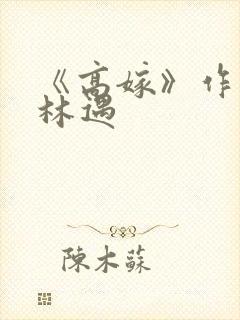 《高嫁》作
林遇
陳木蘇